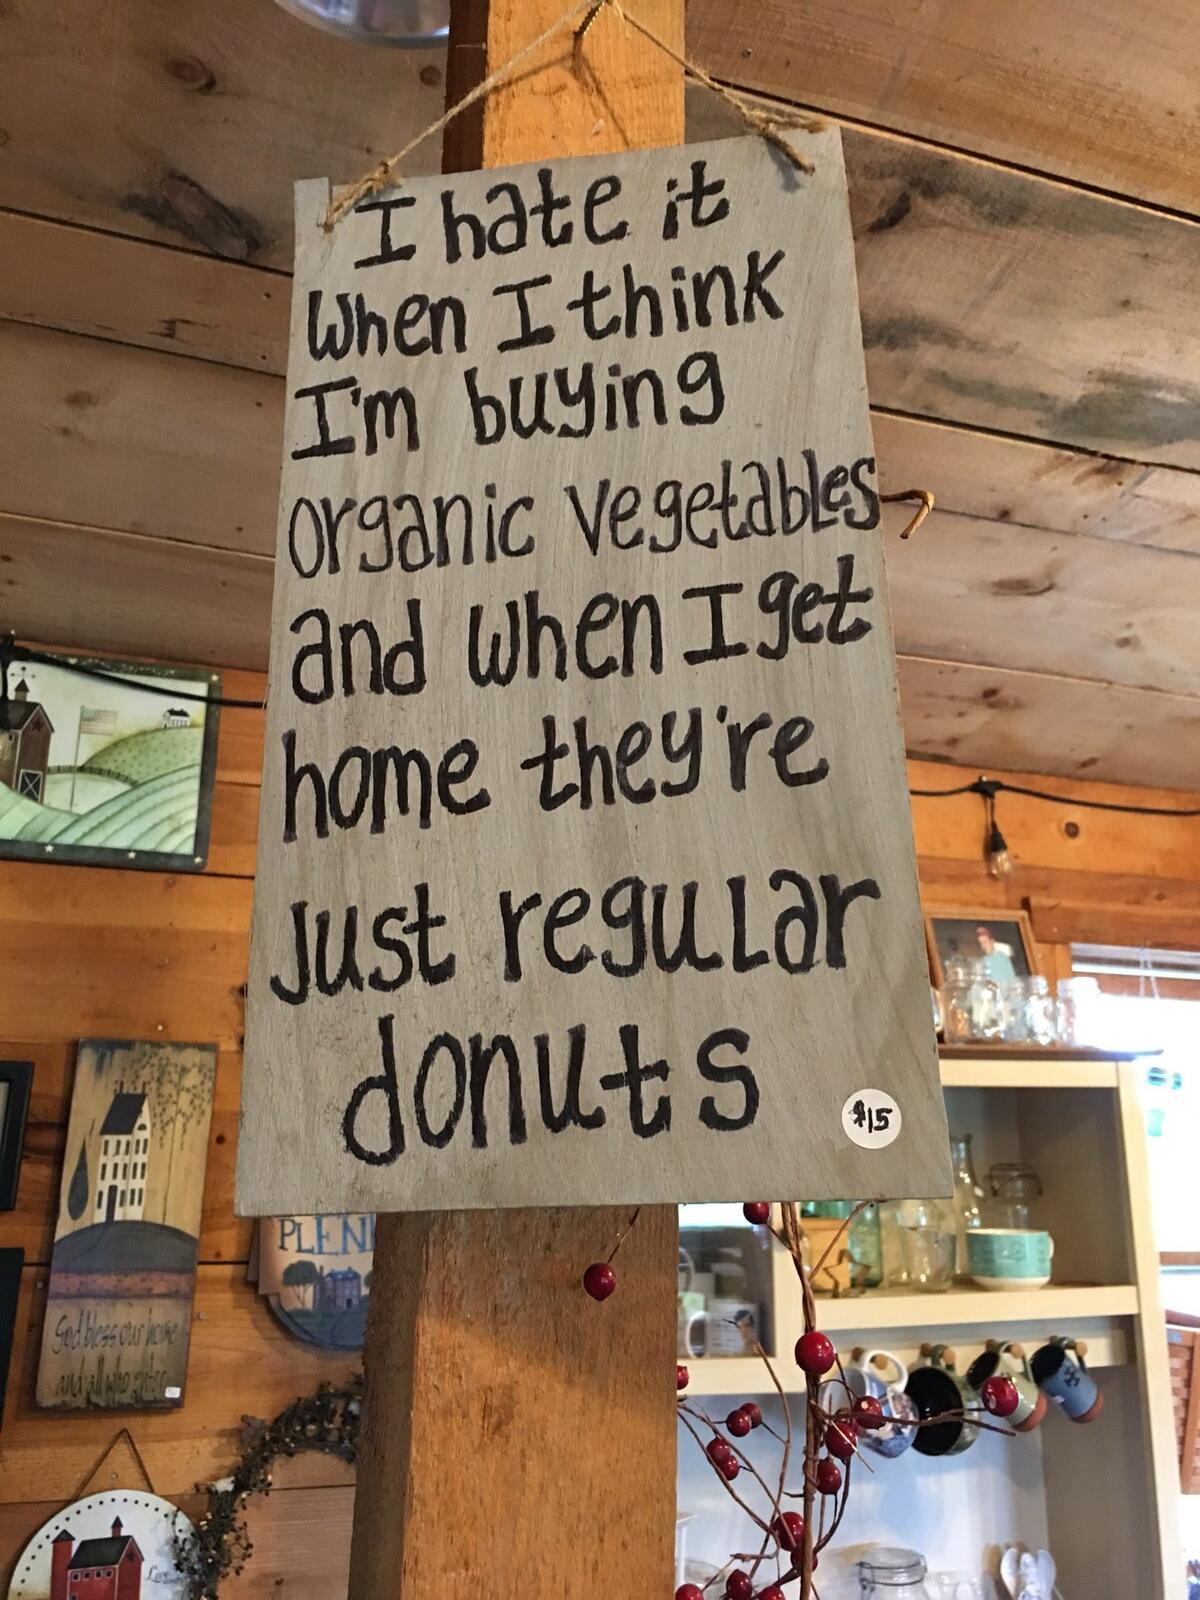 I hate it
when I think
I'm buying
organic vegetables
and when I get
home they're
just regular
donuts
$15
PLEN
God bless our home
and all who enter
Love